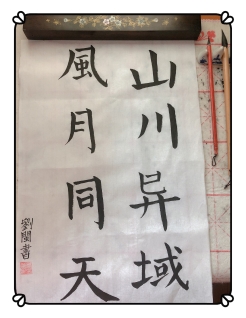 山川异域
風月同天
劉閩書